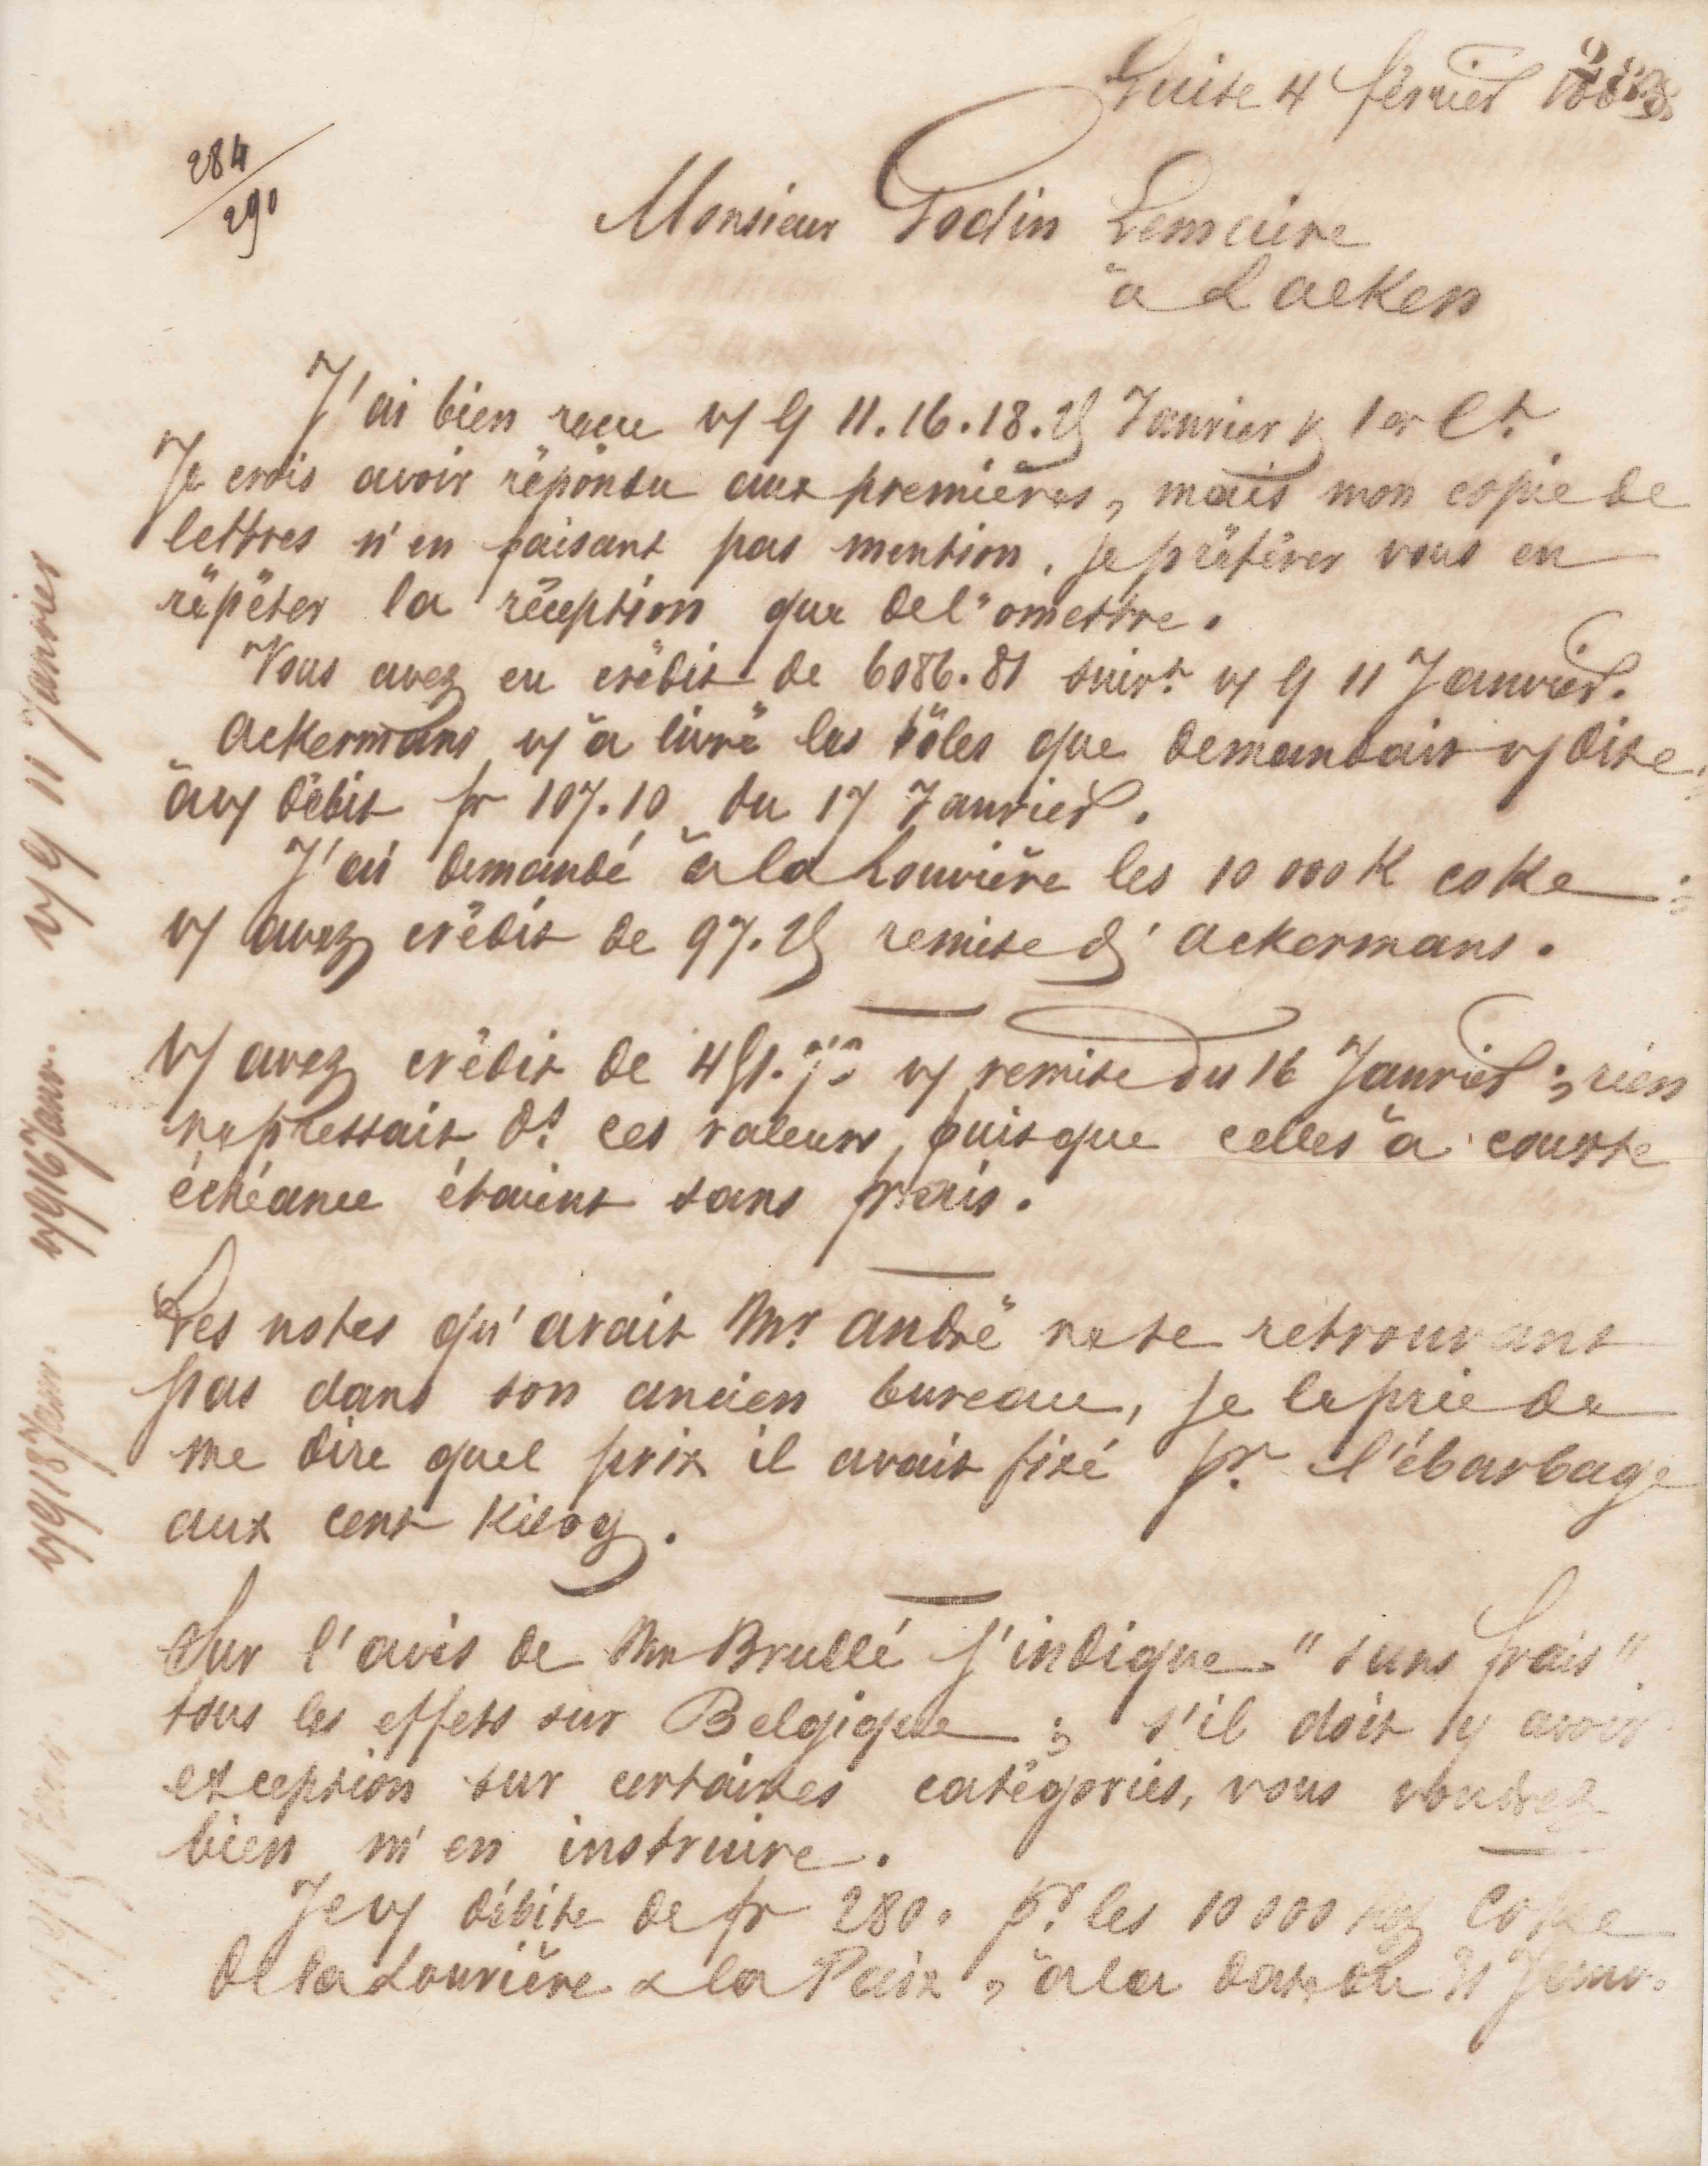 Guise 4 février
284
290
Monsieur Godin Lemaire
à Laeken
J'ai bien reçu v/ l/ 11. 16. 18. 25 Janvier & 1er Ct.
Je crois avoir répondu aux premières, mais mon copie de
lettres n'en faisant pas mention, je préfère vous en
répéter la réception que de l'omettre.
Vous avez eu crédit de 6086.81 suivt v/ l/ 11 Janvier.
Ackermans v/ a livré les tôles que demandait v/ dite
à v/ débit fr 107.10 du 17 Janvier.
J'ai demandé à la Louvière les 10 000 K coke ;
v/ avez crédit de 97.25 remise d'Ackermans.
V/ avez crédit de 451. v/ remise du 16 Janvier ; rien
ne pressait ds ces valeurs, puisque celles à courte
échéance étaient sans frais.
Les notes qu'avait Mr André ne se retrouvant
pas dans son ancien bureau, je le prie de
me dire quel prix il avait fixé pr l'ébarbage
aux cent Kilog.
Sur l'avis de Mr Brullé j'indique "sans frais"
tous les effets sur Belgique ; s'il doit y avoir
exception sur certaines catégories, vous voudrez
bien m'en instruire.
Je v/ débite de fr 280. pr les 10 000 Kg Coke
de la Louvière & la Paix, à la date du 31 Janv.
v/ l/ 11 Janvier
v/ l/ 16 Janv.
v/ l/ 18 Janv.
v/ l/ 25 Janv